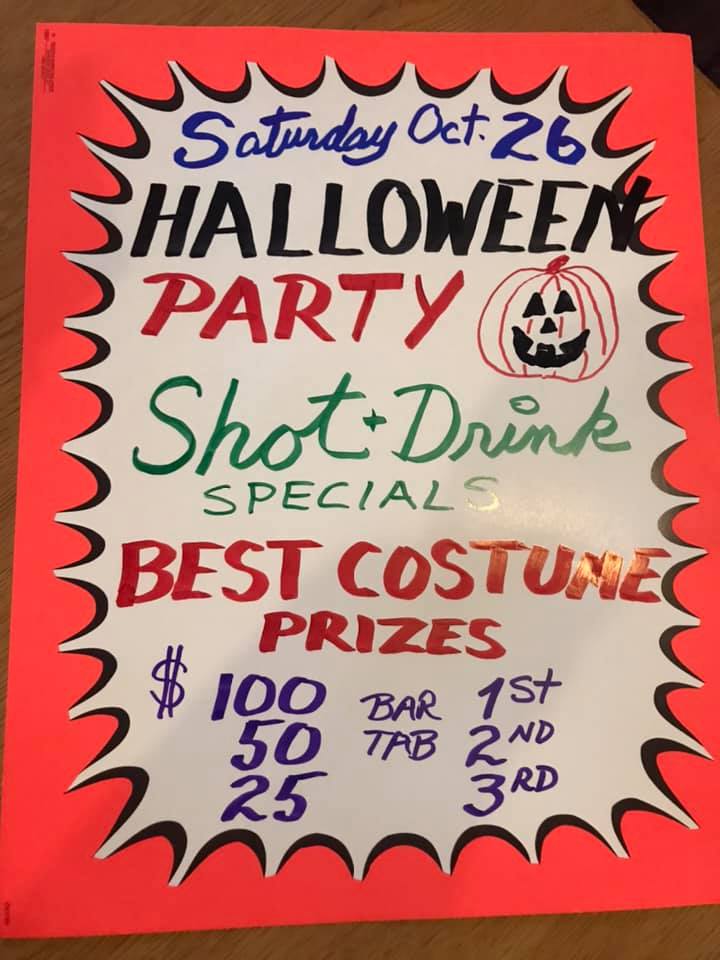 Saturday Oct. 26
HALLOWEEN
PARTY
Shot + Drink
SPECIALS
BEST COSTUME
PRIZES
$ 100 BAR 1ST
50 TAB 2ND
25 3RD